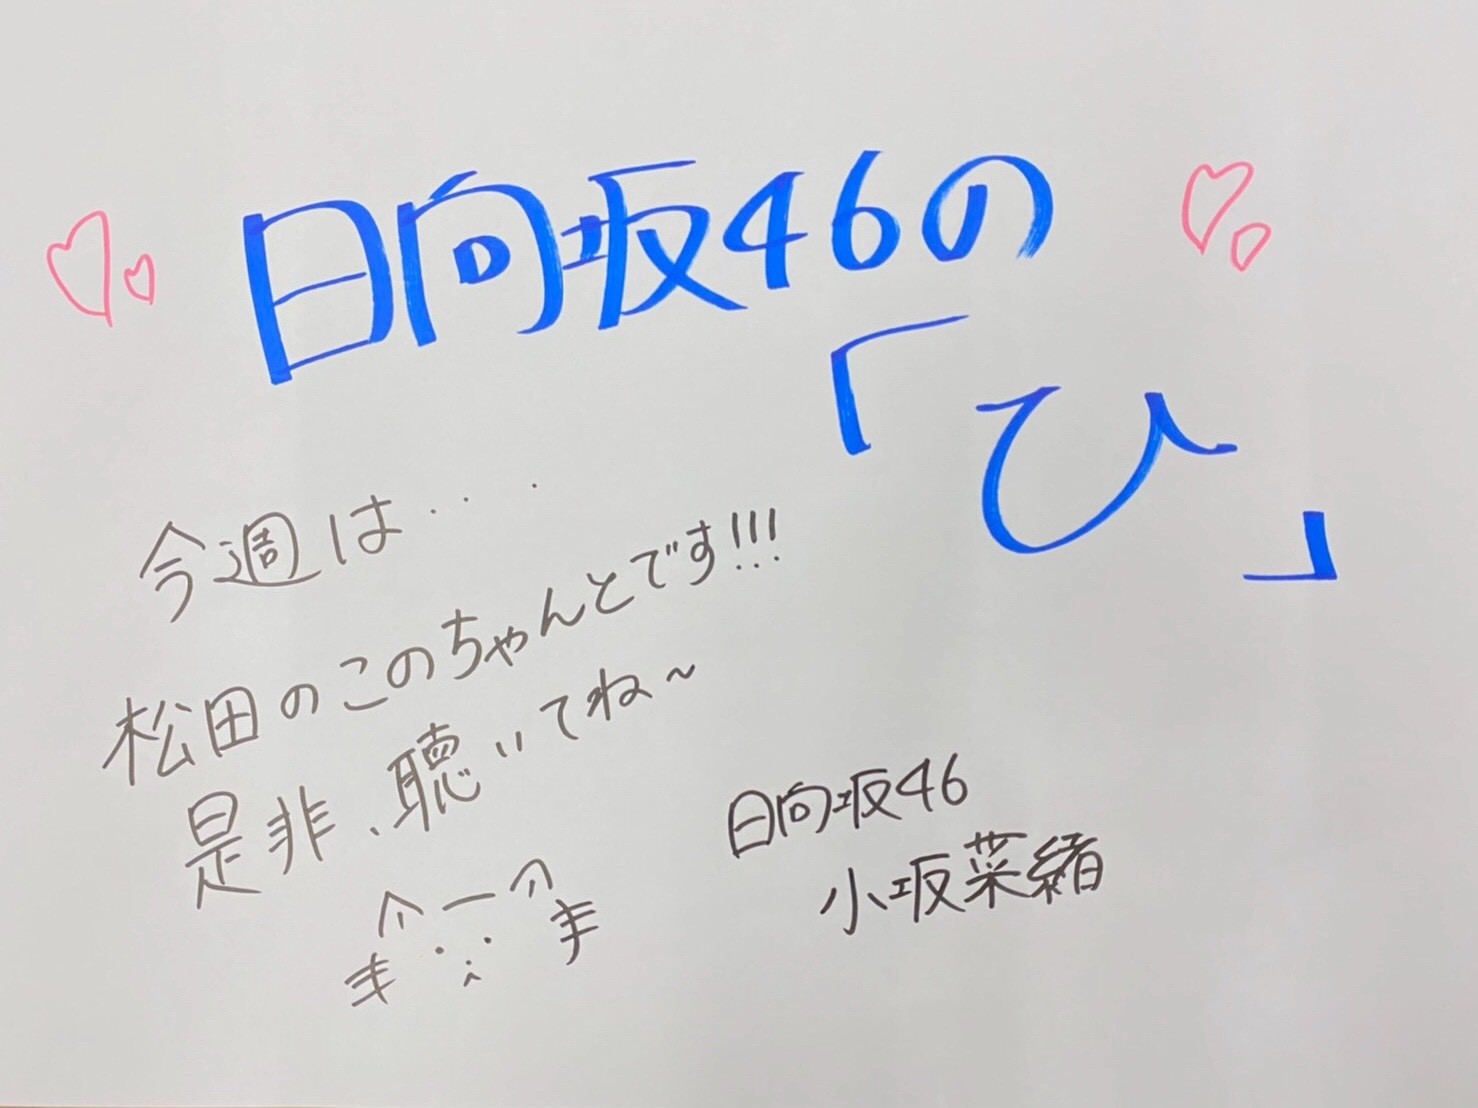 日向坂46の
「ひ」
今週は...
松田のこのちゃんとです!!!
是非、聴いてね〜
日向坂46
小坂菜緒